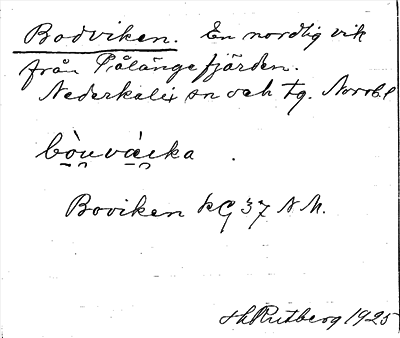 Bodviken. En nordlig vik
från Pålänge fjärden.
Nederkalix sn och tg. Norrb l
bòu̯vái̯ka .
Boviken kG 37 N M.
H Rutberg 1925